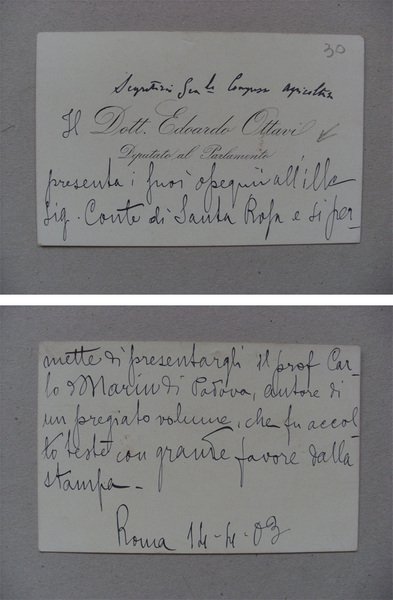 30
Segretario Gen.le Congresso Agricoltura
Il Dott. Edoardo Ottavi
Deputato al Parlamento
presenta i suoi ossequii all'ill.e
Sig. Conte di Santa Rosa e si per-
mette di presentargli il prof Car-
lo Marin di Padova, autore di
un pregiato volume, che fu accol-
to testè con grande favore dalla
stampa -
Roma 14-4-03